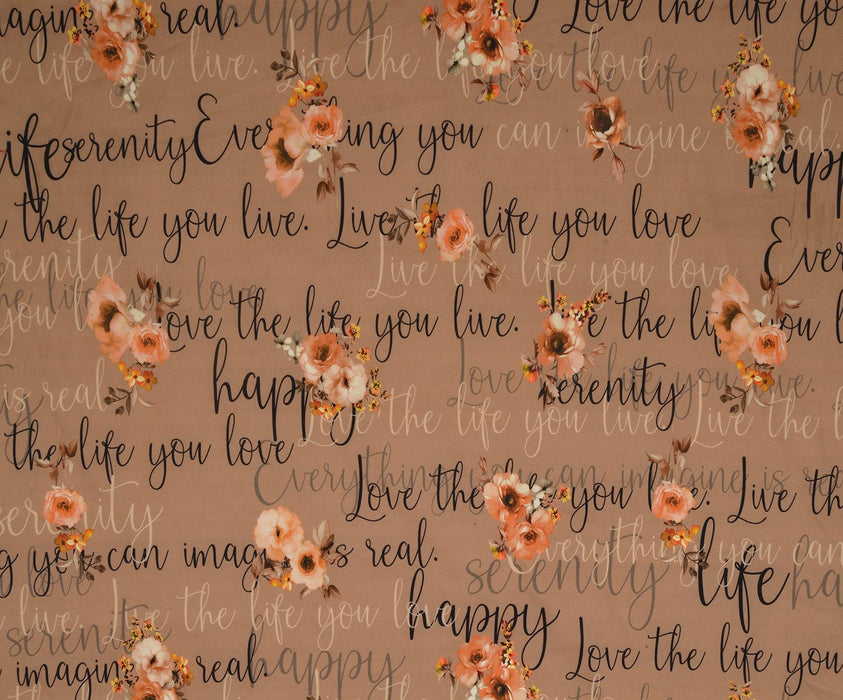 imagin real. happy Love the life you
the life you live. Live the life you love the life you live
life serenity Everything you can imagine is real.
happy
the life you live. Live the life you love
serenity Live the life you love Every
the life you love
you Love the life you live. Live the life you l
is real. happy serenity Love the life you live.
Love the life you live. Live the l
the life you love
Everything you can imagine is real
serenity Love the life you live. Live the
g you can imagine is real. everything you can
Love serenity life ha
live. Live the life you love happy
serenity
imagin real. happy Love the life you